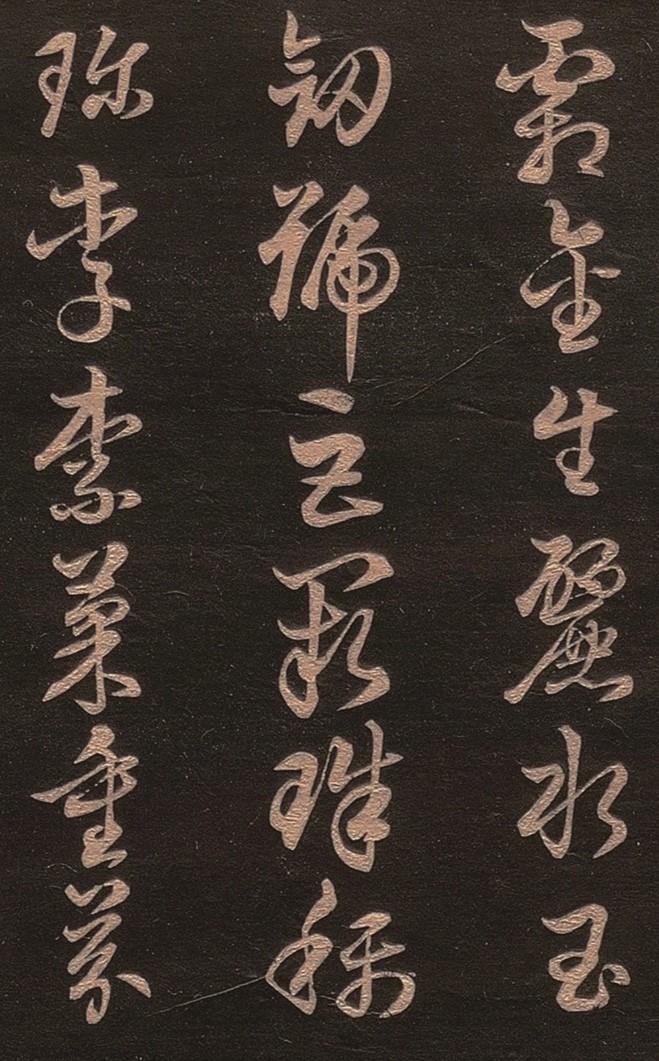 霜金生麗水玉
劒號巨闕珠稱
珎李柰菜重芥